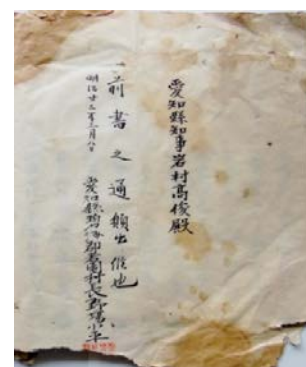 愛知縣知事岩村高俊殿
前書之通願出候也
明治廿三年三月八日
愛知縣碧海郡 村長 平